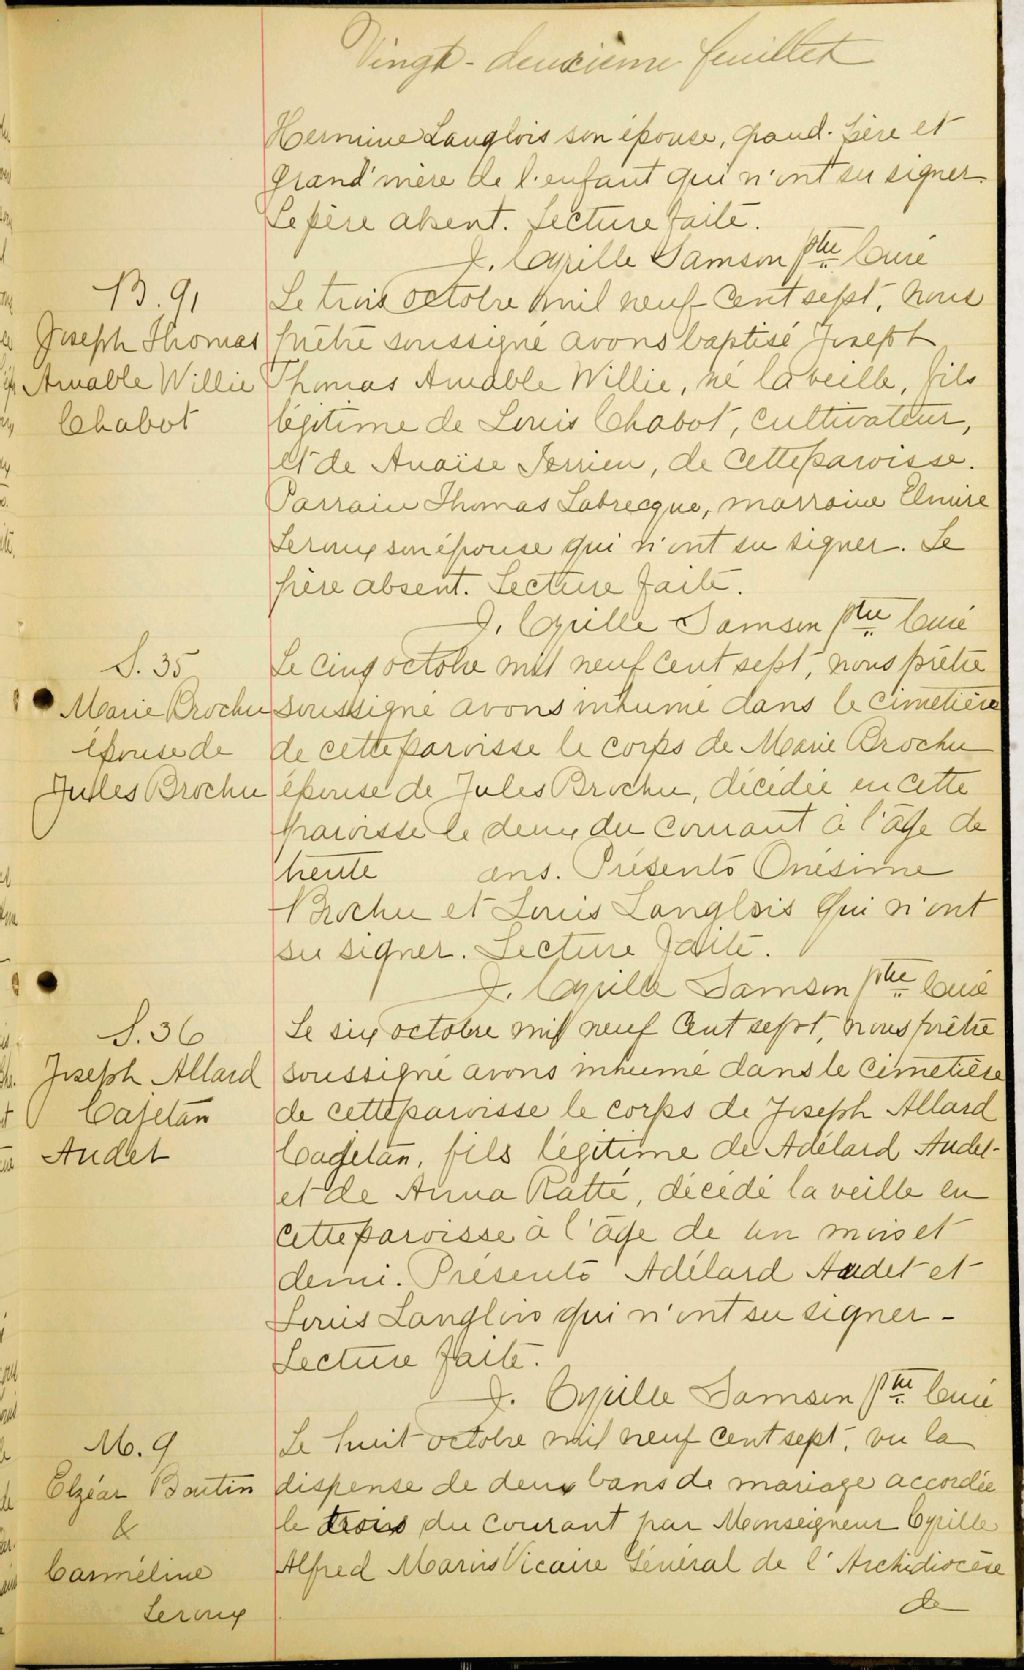 Vingt-deuxième feuillet
Hermine Langlois son épouse, grand-père et
grand'mère de l'enfant qui n'ont su signer.
Le père absent. Lecture faite.
J. Cyrille Samson ptre Curé
B. 91
Joseph Thomas
Amable Willie
Chabot
Le trois octobre mil neuf cent sept, nous
prêtre soussigné avons baptisé Joseph
Thomas Amable Willie, né la veille, fils
légitime de Louis Chabot, cultivateur,
et de Anaïse Terrien, de cette paroisse.
Parrain Thomas Labrecque, marraine Elmire
Leroux son épouse qui n'ont su signer. Le
père absent. Lecture faite.
J. Cyrille Samson ptre Curé
S. 35
Marie Brochu
épouse de
Jules Brochu
Le cinq octobre mil neuf cent sept, nous prêtre
soussigné avons inhumé dans le cimetière
de cette paroisse le corps de Marie Brochu
épouse de Jules Brochu, décédée en cette
paroisse le deux du courant à l'âge de
trente ans. Présents Onésime
Brochu et Louis Langlois qui n'ont
su signer. Lecture faite.
J. Cyrille Samson ptre Curé
S. 36
Joseph Allard
Cajetan
Audet
Le six octobre mil neuf cent sept, nous prêtre
soussigné avons inhumé dans le cimetière
de cette paroisse le corps de Joseph Allard
Cajetan, fils légitime de Adélard Audet
et de Anna Ratté, décédé la veille en
cette paroisse à l'âge de un mois et
demi. Présents Adélard Audet et
Louis Langlois qui n'ont su signer -
Lecture faite.
J. Cyrille Samson ptre Curé
M. 9
Elzéar Boutin
&
Carméline
Leroux
Le huit octobre mil neuf cent sept, vu la
dispense de deux bans de mariage accordée
le trois du courant par Monseigneur Cyrille
Alfred Marois Vicaire Général de l'Archidiocèse
de